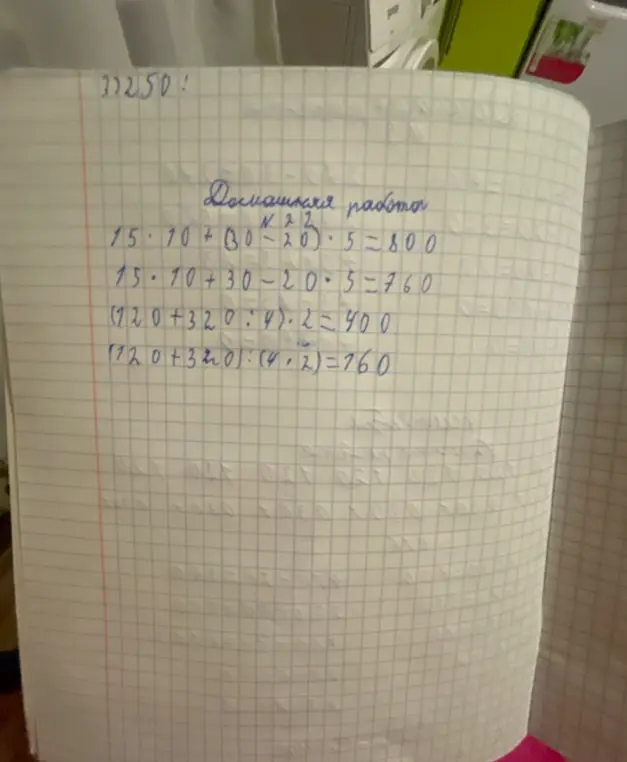 3) 250:
Домашняя работа
N 22
15 · 10 + (30 - 20) · 5 = 800
15 · 10 + 30 - 20 · 5 = 760
(120 + 320 : 4) · 2 = 400
(120 + 320) : (4 · 2) = 160